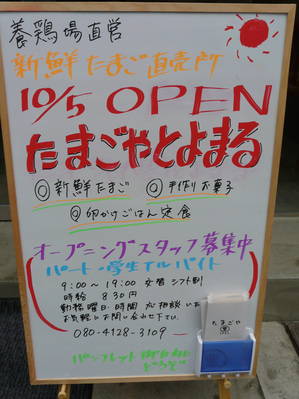 養鶏場直営
新鮮たまご直売所
10/5 OPEN
たまごやとよまる
◎新鮮たまご ◎手作りお菓子
◎卵かけごはん定食
オープニングスタッフ募集中
パート・学生アルバイト
9:00〜19:00 交替シフト制
時給 830円
勤務曜日・時間 応相談
お気軽にお問い合わせ下さい
080-4128-3109
パンフレット
どうぞ
たまごや